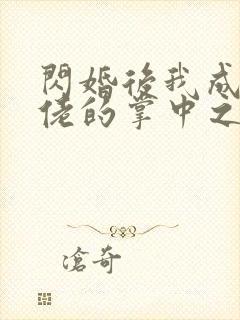 閃婚後我成
佬的掌中之
滄奇